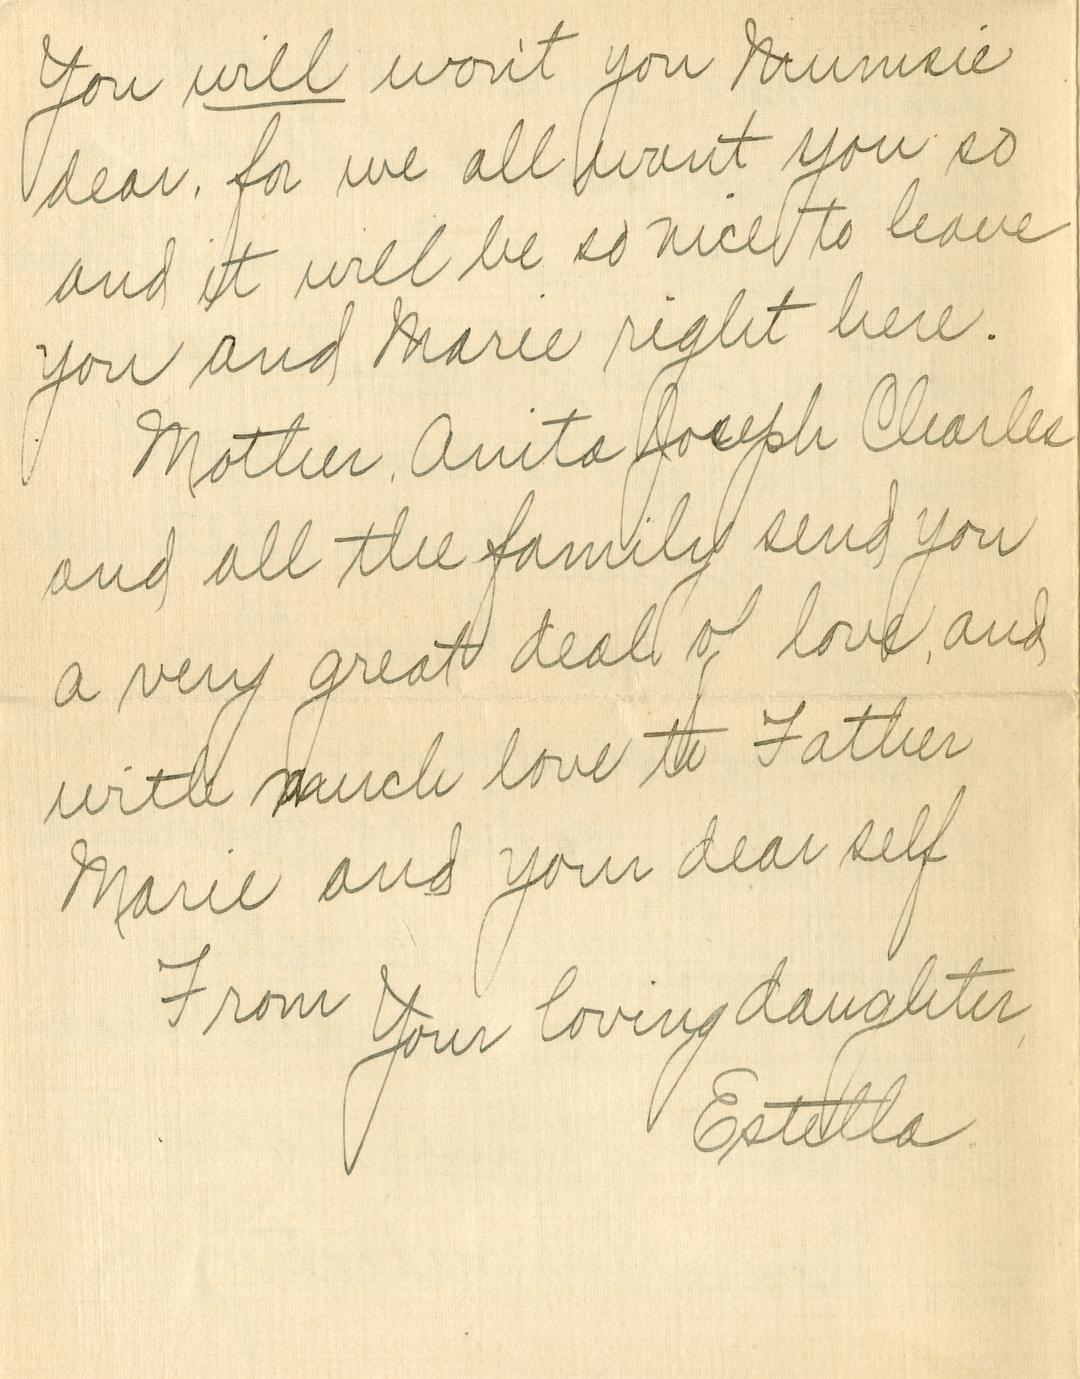 You will won't you Mumsie
dear, for we all want you so
and it will be so nice to leave
you and Marie right here.
Mother, Anita Joseph Charles
and all the family send you
a very great deal of love, and
with much love to Father
Marie and your dear self
From Your loving daughter,
Estella